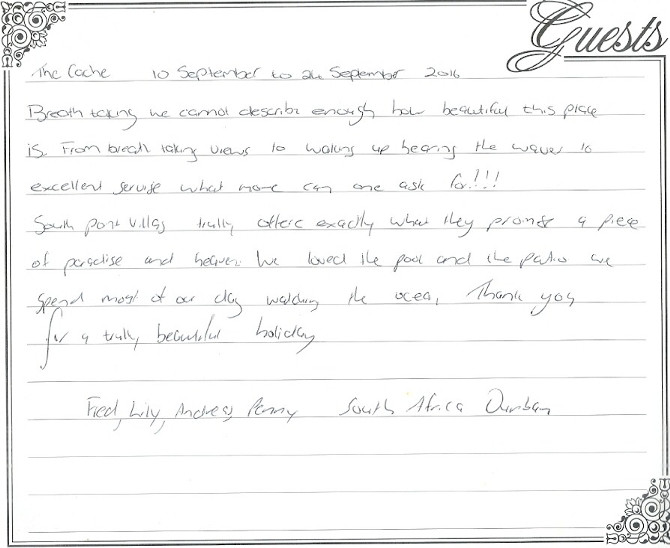 Guests
The Cache 10 September to 24 September 2016
Breath taking we cannot describe enough how beautiful this place
is. From breath taking views to waking up hearing the waves to
excellent service what more can one ask for!!!
South port Villas trully offers exactly what they promise a piece
of paradise and heaven. We loved the pool and the patio we
spend most of our day watching the ocean, Thank you
for a trully beautiful holiday
Fred, Lily, Andrea, Penny South Africa Durban